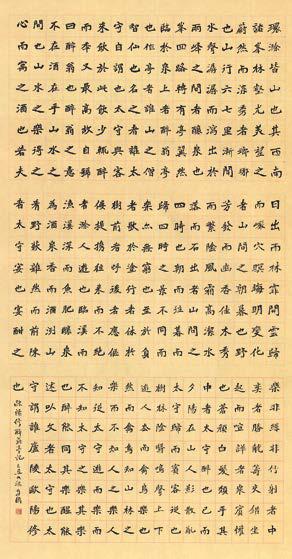 環滁皆山也其西南
諸峯林壑尤美望之
蔚然而深秀者瑯琊
也山行六七里漸聞
水聲潺潺而瀉出於
兩峰之間者釀泉也
峯回路轉有亭翼然
臨於泉上者醉翁亭
也作亭者誰山之僧
智仙也名之者誰太
守自謂也太守與客
來飲於此飲少輒醉
而年又最高故自號
曰醉翁也醉翁之意
不在酒在乎山水之
間也山水之樂得之
心而寓之酒也若夫
日出而林霏開雲歸
而巖穴暝晦明變化
者山間之朝暮也野
芳發而幽香佳木秀
而繁陰風霜高潔水
落而石出者山間之
四時也朝而往暮而
歸四時之景不同而
樂亦無窮也至於負
者歌於塗行者休於
樹前者呼後者應傴
僂提攜往來而不絕
者滁人遊也臨溪而
漁溪深而魚肥釀泉
為酒泉香而酒洌山
肴野蔌雜然而前陳
者太守宴也宴酣之
樂非絲非竹射者中
弈者勝觥籌交錯坐
起而諠譁者衆賓歡
也蒼顏白髮頹乎其
中者太守醉也已而
夕陽在山人影散亂
太守歸而賓客從也
樹林陰翳鳴聲上下
遊人去而禽鳥樂也
然而禽鳥知山林之
樂而不知人之樂人
知從太守遊而樂而
不知太守之樂其樂
也醉能同其樂醒能
述以文者太守也太
守謂誰廬陵歐陽修
也
歐陽修醉翁亭記